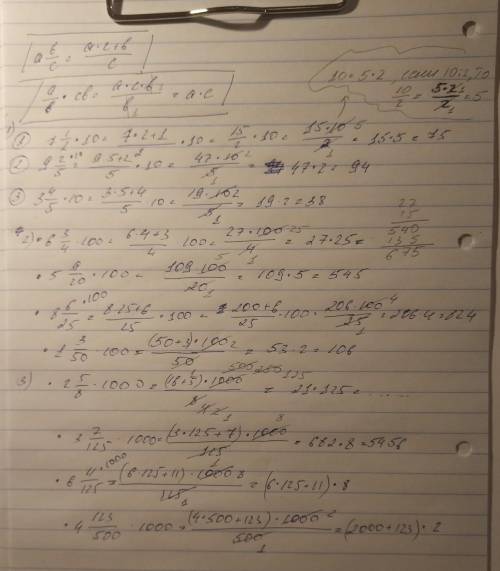 a b/c = a·c+b/c
a/b · cb = a·c·b/b 1 = a·c
10=5·2, если 10:2, то
10/2 = 5·2 1/2 1 = 5
1) ① 7 1/2 ·10 = 7·2+1/2 ·10 = 15/2 ·10 = 15·10 5/2 1 = 15·5 = 75
② 9 2/5 ·10 = 9·5+2/5 ·10 = 47·10 2/5 1 = 47·2 = 94
③ 3 4/5 ·10 = 3·5+4/5 ·10 = 19·10 2/5 1 = 19·2 = 38
27
15
540
135
675
2) · 6 3/4 ·100 = 6·4+3/4 ·100 = 27·100 25/4 1 = 27·25 =
· 5 9/20 ·100 = 109·100 5/20 1 = 109·5 = 545
· 8 6/25 ·100 = 8·25+6/25 ·100 = 200+6/25 ·100 = 206·100 4/25 1 = 206·4 = 824
· 1 3/50 ·100 = (50+3)·100 2/50 = 53·2 = 106
3) · 2 5/8 ·1000 = (16+5)·1000 500 250 125/8 4 2 1 = 21·125 = ......
· 3 7/125 ·1000 = (3·125+7)·1000 8/125 1 = 682·8 = 5456
· 6 11/125 ·1000 = (6·125+11)·1000 8/125 1 = (6·125+11)·8
· 4 123/500 ·1000 = (4·500+123)·1000 2/500 1 = (2000+123)·2